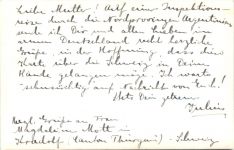 Liebe Mutter! Auf einer Inspektions-
reise durch die Nordprovinzen Argentiniens
sende ich Dir und allen Lieben im
armen Deutschland recht herzliche
Grüße, in der Hoffnung dass diese
Karte über die Schweiz in Deine
Hände gelangen möge. Ich warte
sehnsüchtig auf Nachricht von Euch!
Stets Dein getreuer
Julius
Grüße an Frau
Magdalena Mott in
(Kanton Thurgau) - Schweiz